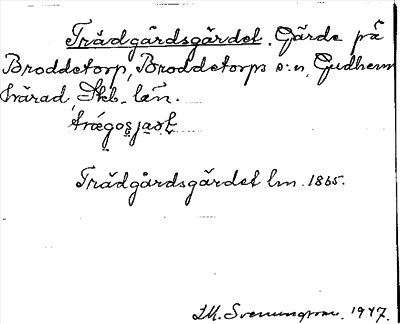 Trädgårdsgärdet. Gärde på
Broddetorp, Broddetorps s:n, Gudhems
härad, Skb. län.
Trädgårdsgärdet lm. 1865.
1947.